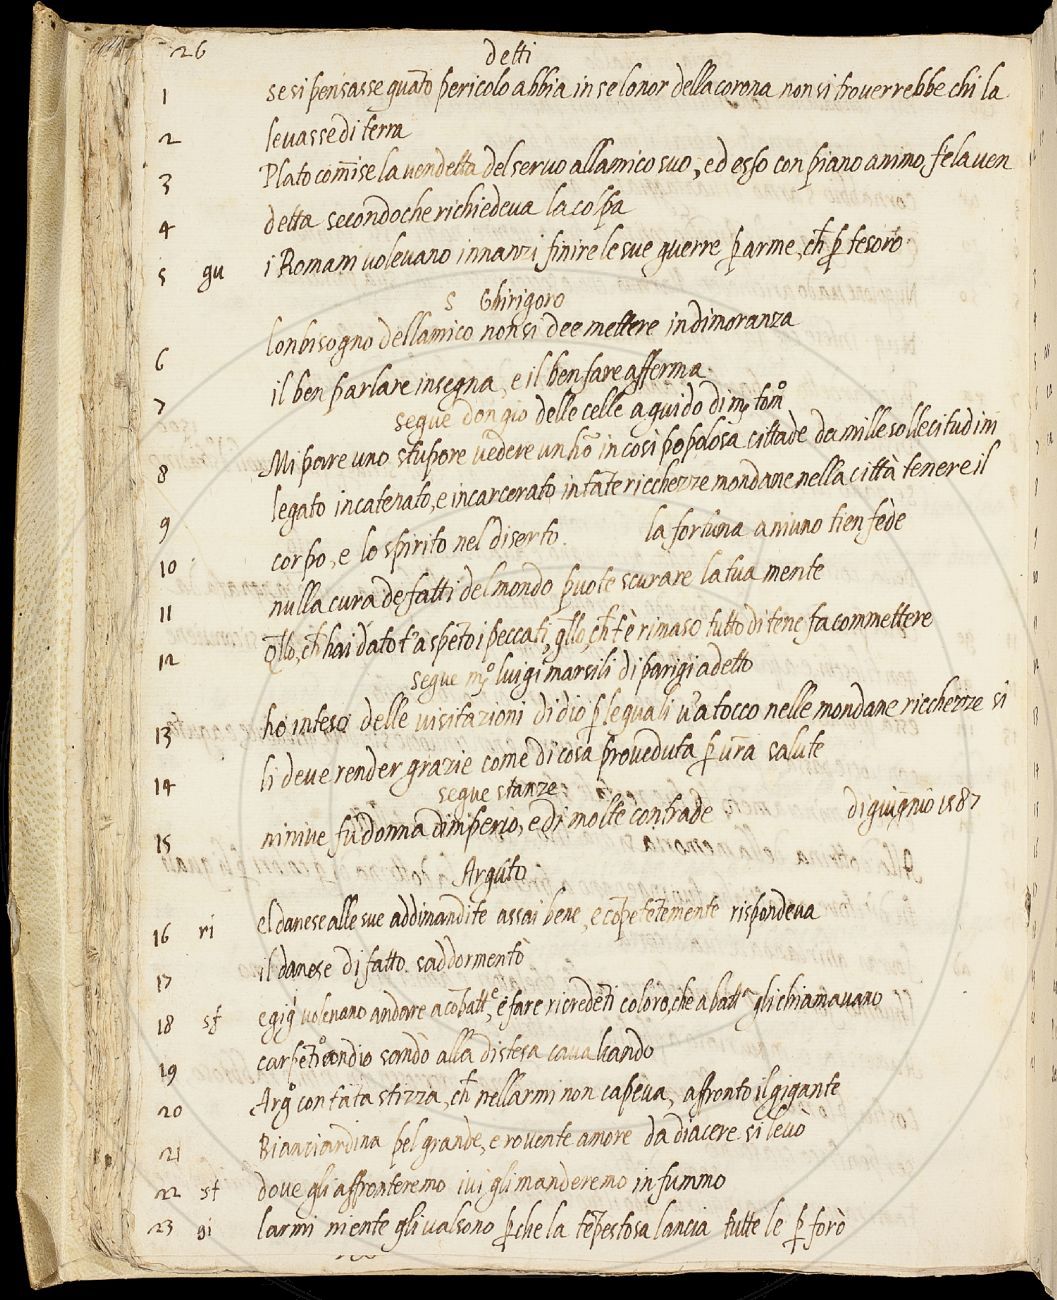 26 detti
1 se si pensasse quāto pericolo abbia in se lonor della corona non si trouerrebbe chi la
2 leuasse di terra
3 Plato com̄ise la vendetta del seruo allamico suo, ed esso con piano animo, fe la uen
4 detta secondo che richiedeua la colpa
5 gu i Romani uoleuano innanzi finire le sue guerre ꝑ arme, ch̄ ꝑ tesoro
S Ghirigoro
6 lonbisogno dellamico non si dee mettere indimoranza
7 il ben parlare insegna, e il ben fare afferma
segue don gio delle celle a guido di mͥ tomͦ
8 Mi pare uno stupore uedere un hō in cosi popolosa cittade da mille sollecitudini
9 legato incatenato, e incarcerato in tāte ricchezze mondane nella città tenere il
10 corpo, e lo spirito nel diserto. la fortuna a niuno tien fede
11 nulla cura de fatti del mondo puote scurare la tua mente
12 Q̄llo, ch̄ hai dato t'a spēto i peccati, q̄llo, ch̄ t'è rimaso tutto di te ne fa commettere
segue mͦ luigi marsili di parigi a detto
13 ho inteso delle uisitazioni di dio ꝑ lequali u'a tocco nelle mondane ricchezze si
14 li deue render grazie come di cosa proueduta ꝑ ur̄a salute
segue stanze
15 niniue fu donna dimperio, e di molte contrade di giugnio 1587
Arguto
16 ri el danese alle sue addimandite assai bene, e cōpetētemente rispondeua
17 il danese di fatto saddormentò
18 st e gig̊ uoleuano andare a cōbattͤ, e fare ricredēti coloro, che a battͣ gli chiamauano
19 carpētͦ sondio sandò alla distesa caualcando
20 Arg̊ con tāta stizza, ch̄ nellarmi non capeua, affronto il gigante
21 Bianciardina pel grande, e rouente amore da diacere si leuo
22 st doue gli affronteremo iui gli manderemo in fummo
23 gi larmi mente gli ualsono ꝑche la tēpestosa lancia tutte le ꝑ forò